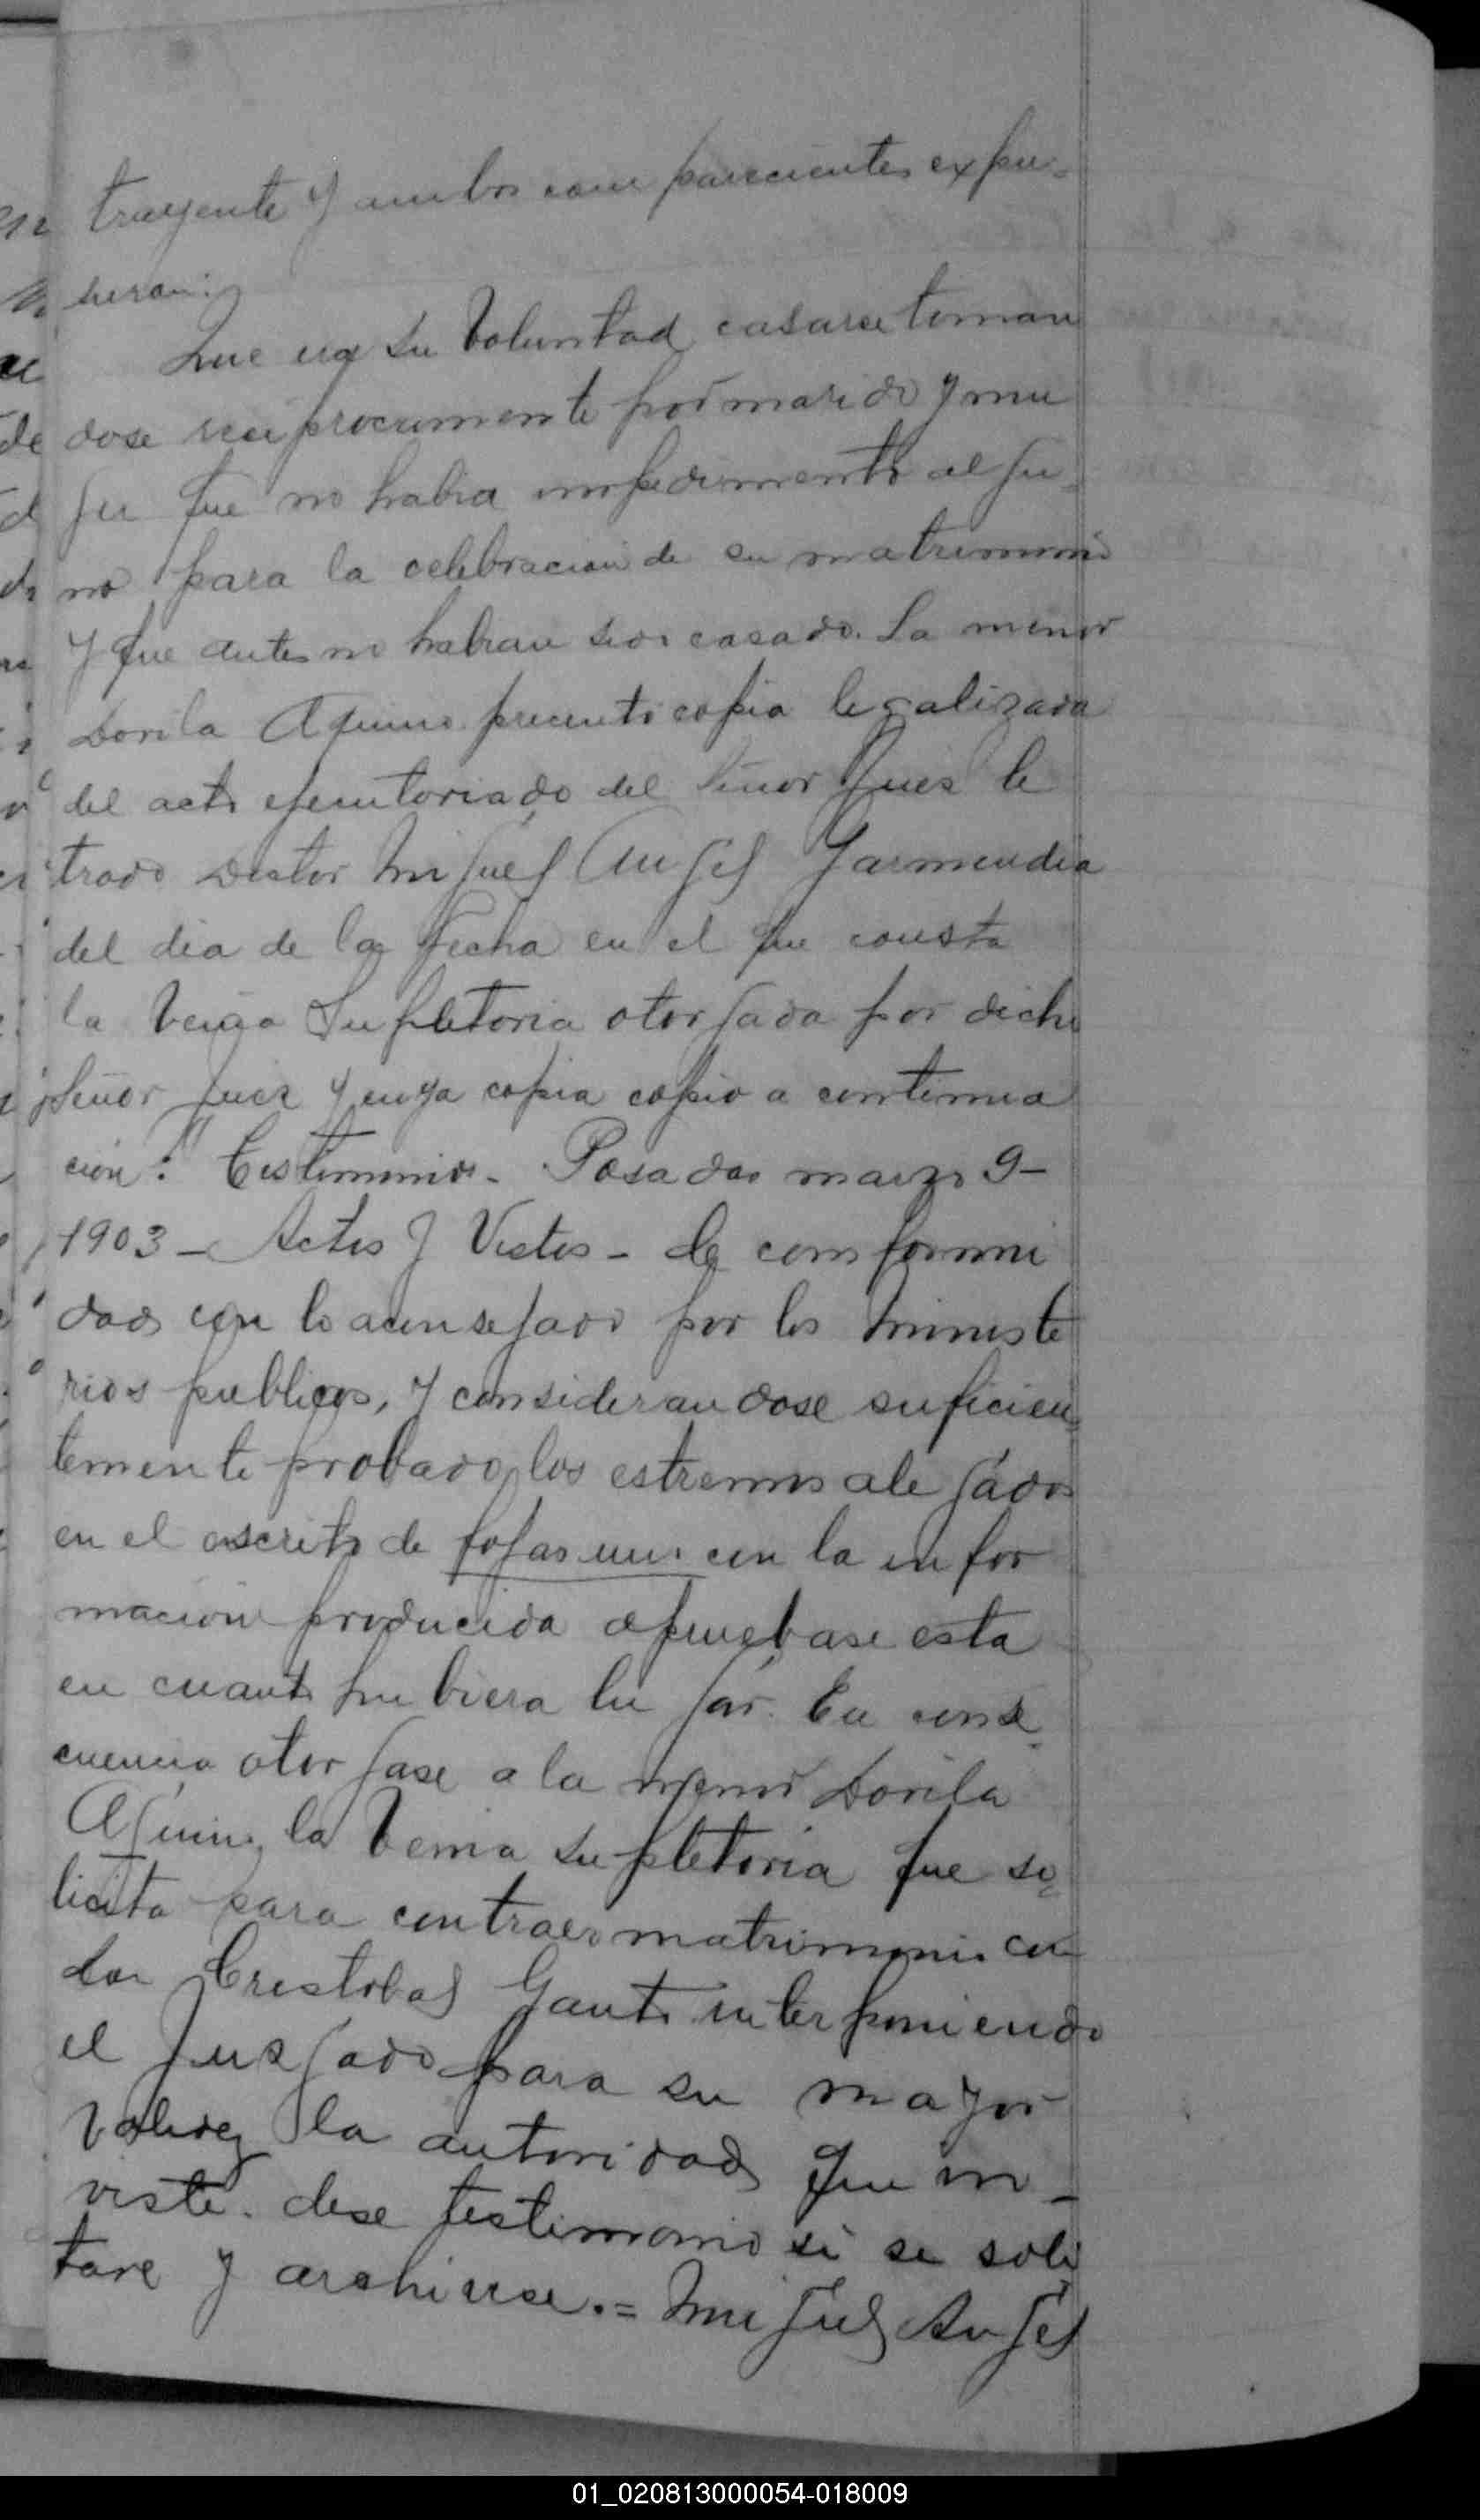 trayente y ambos comparecientes expu=
sieron:
Que era su voluntad casarse toman
dose reciprocamente por marido y mu
jer que no habia impedimento algu=
no para la celebracion de su matrimonio
y que antes no habian sido casado. La menor
Dorila Aquino presento copia legalizada
del acto ejecutoriado del Señor Juez le
trado Doctor Miguel Angel Garmendia
del dia de la fecha en el que consta
la Venia Supletoria otorgada por dicho
Señor Juez y cuya copia copio a continua
cion: "Testimonio - Posadas marzo 9-
1903 - Actos y Vistos - de conformi
dad con lo aconsejado por los Ministe
rios publicos, y considerandose suficien=
temente probado los estremos alegados
en el escrito de fojas uno con la infor
macion producida apruebase esta
en cuanto hubiera lugar. En conse=
cuencia otorgase a la menor Dorila
Aquino la Venia Supletoria que so=
licita para contraer matrimonio con
don Cristobal Gauto interponiendo
el Juzgado para su mayor
Validez la autoridad que in-
viste. dese testimonio si se soli
tare y archivese.= Miguel Angel
01_020813000054-018009